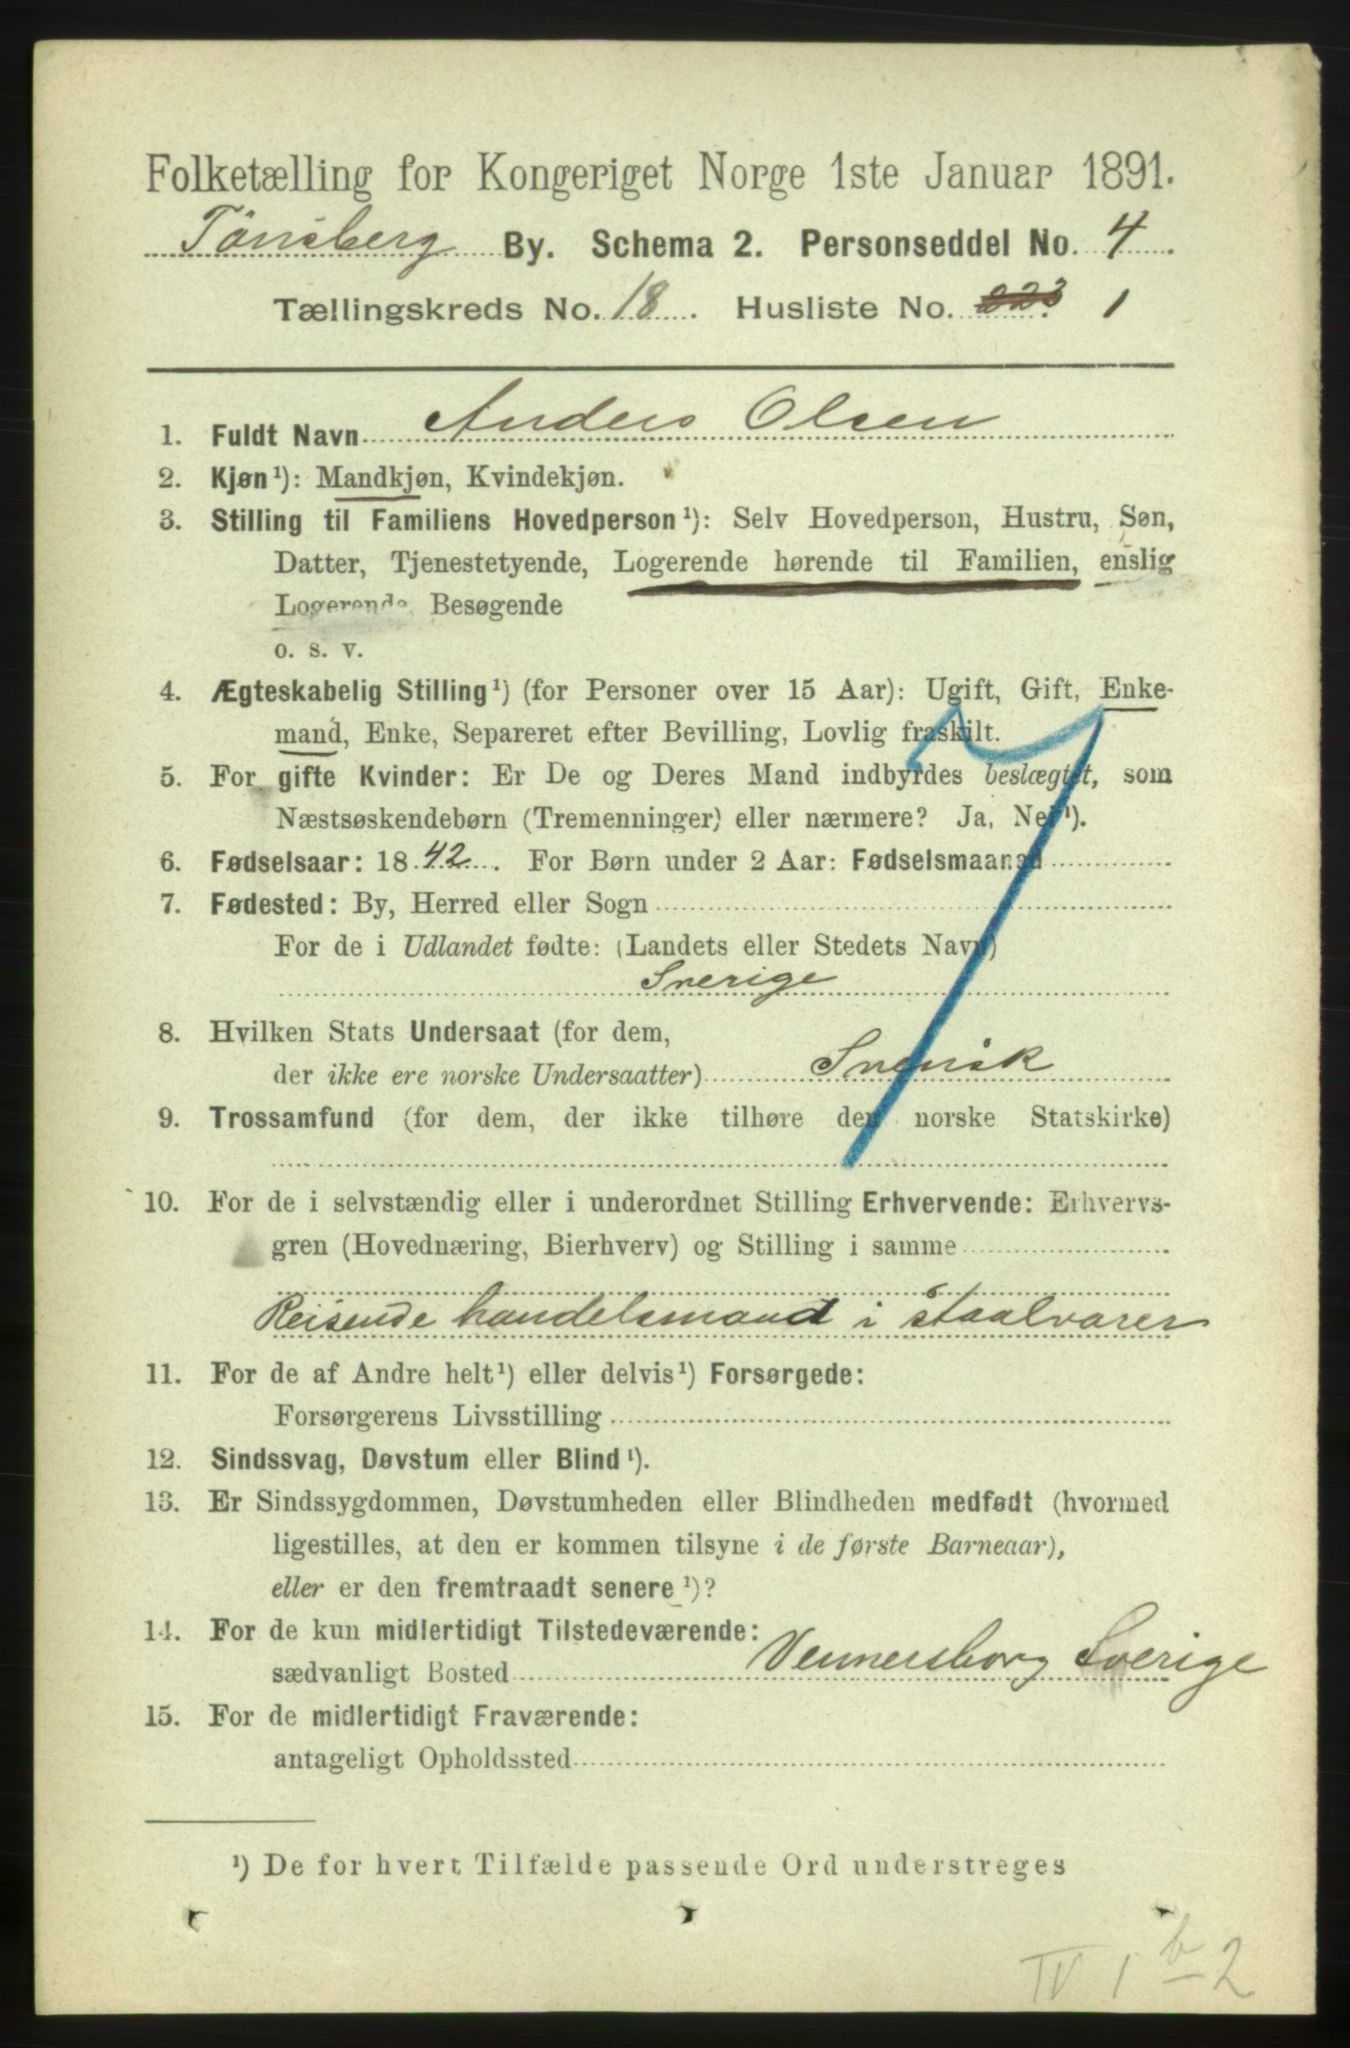 Folketælling for Kongeriget Norge 1ste Januar 1891.
Tönsberg By. Schema 2. Personseddel No. 4.
Tællingskreds No. 18. Husliste No. 223 1
1. Fuldt Navn Anders Olsen
2. Kjøn¹): Mandkjøn, Kvindekjøn.
3. Stilling til Familiens Hovedperson¹): Selv Hovedperson, Hustru, Søn,
Datter, Tjenestetyende, Logerende hørende til Familien, enslig
Logerende, Besøgende
o. s. v.
4. Ægteskabelig Stilling¹) (for Personer over 15 Aar): Ugift, Gift, Enke-
mand, Enke, Separeret efter Bevilling, Lovlig fraskilt.
5. For gifte Kvinder: Er De og Deres Mand indbyrdes beslægtet, som
Næstsøskendebørn (Tremenninger) eller nærmere? Ja, Nei¹).
6. Fødselsaar: 1842. For Børn under 2 Aar: Fødselsmaaned
7. Fødested: By, Herred eller Sogn
For de i Udlandet fødte: (Landets eller Stedets Navn)
Sverige
8. Hvilken Stats Undersaat (for dem,
der ikke ere norske Undersaatter) Svensk
9. Trossamfund (for dem, der ikke tilhøre den norske Statskirke)
10. For de i selvstændig eller i underordnet Stilling Erhvervende: Erhvervs-
gren (Hovednæring, Bierhverv) og Stilling i samme
Reisende handelsmand i staalvarer
11. For de af Andre helt¹) eller delvis¹) Forsørgede:
Forsørgerens Livsstilling
12. Sindssvag, Døvstum eller Blind¹).
13. Er Sindssygdommen, Døvstumheden eller Blindheden medfødt (hvormed
ligestilles, at den er kommen tilsyne i de første Barneaar),
eller er den fremtraadt senere¹)?
14. For de kun midlertidigt Tilstedeværende:
sædvanligt Bosted Vennersborg Sverige
15. For de midlertidigt Fraværende:
antageligt Opholdssted
¹) De for hvert Tilfælde passende Ord understreges
IV 1 b 2